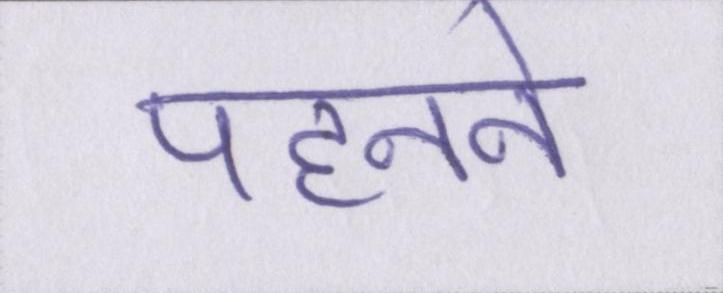 पहनने